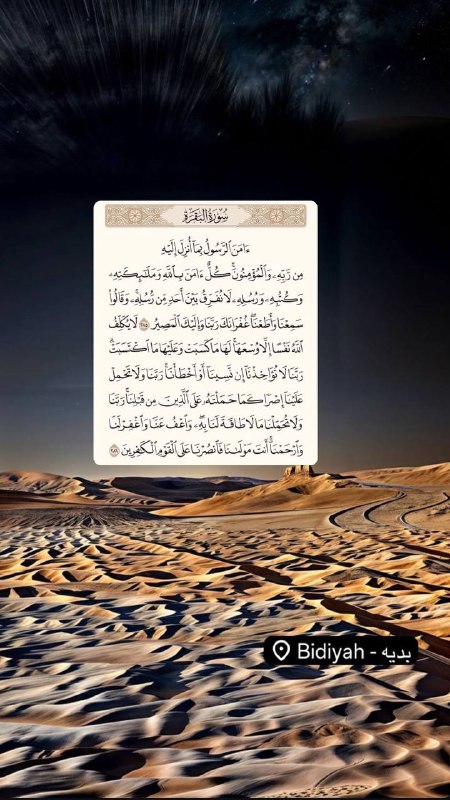 سُورَةُ البَقَرَةِ
ءَامَنَ ٱلرَّسُولُ بِمَآ أُنزِلَ إِلَيْهِ
مِن رَّبِّهِۦ وَٱلْمُؤْمِنُونَۚ كُلٌّ ءَامَنَ بِٱللَّهِ وَمَلَٰٓئِكَتِهِۦ
وَكُتُبِهِۦ وَرُسُلِهِۦ لَا نُفَرِّقُ بَيْنَ أَحَدٍ مِّن رُّسُلِهِۦۚ وَقَالُوا۟
سَمِعْنَا وَأَطَعْنَاۖ غُفْرَانَكَ رَبَّنَا وَإِلَيْكَ ٱلْمَصِيرُ ٢٨٥ لَا يُكَلِّفُ
ٱللَّهُ نَفْسًا إِلَّا وُسْعَهَاۚ لَهَا مَا كَسَبَتْ وَعَلَيْهَا مَا ٱكْتَسَبَتْۗ
رَبَّنَا لَا تُؤَاخِذْنَآ إِن نَّسِينَآ أَوْ أَخْطَأْنَاۚ رَبَّنَا وَلَا تَحْمِلْ
عَلَيْنَآ إِصْرًا كَمَا حَمَلْتَهُۥ عَلَى ٱلَّذِينَ مِن قَبْلِنَاۚ رَبَّنَا
وَلَا تُحَمِّلْنَا مَا لَا طَاقَةَ لَنَا بِهِۦۖ وَٱعْفُ عَنَّا وَٱغْفِرْ لَنَا
وَٱرْحَمْنَآۚ أَنتَ مَوْلَىٰنَا فَٱنصُرْنَا عَلَى ٱلْقَوْمِ ٱلْكَٰفِرِينَ ٢٨٦
Bidiyah - بديه